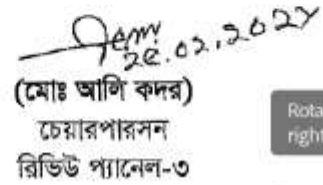 ২৫.০২.২০২১
(মোঃ আলি কদর)
চেয়ারপারসন
রিভিউ প্যানেল-৩
Rota
right